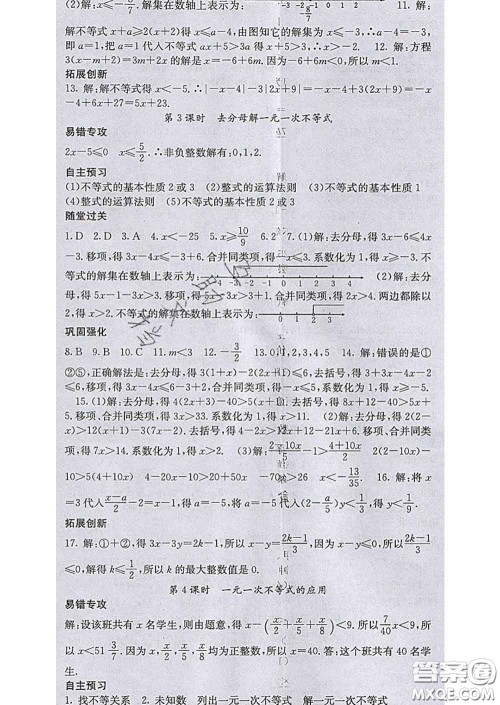 (2)解:x≤-6/7. 解集在数轴上表示为: -3 -2 -1 0 1 2 3 11. 解:
解不等式 x+a≥2(x+2)得 x≤a-4,由图知它的解集为 x≤-3.∴a-4=-3,
即 a=1,把 a=1 代入不等式 ax+5>3a 得 x+5>3.∴x>-2. 12. 解:方程
3(x-m+2)=3m+x 的解是 x=-6+6m. 因为-6+6m<0,所以 m<1.
拓展创新
13. 解:解不等式得 x<-5.∴|-x-4|-3|2x+9|=-x-4+3(2x+9)=-x
-4+6x+27=5x+23.
第 3 课时 去分母解一元一次不等式
易错专攻
2x-5≤0 x≤5/2.∴非负整数解有:0,1,2.
自主预习
(1)不等式的基本性质 2 或 3 (2)整式的运算法则 (3)不等式的基本性质 1
(4)整式的运算法则 (5)不等式的基本性质 2 或 3
随堂过关
1. D 2. D 3. A 4. x<-25 5. x≥10/9 6. 2 7. (1)解:去分母,得 3x-6≤4x
-3. 移项,得 3x-4x≤6-3. 合并同类项,得-x≤3. 系数化为 1,得 x≥-3. 不
等式的解集在数轴上表示为: -4 -3 -2 -1 0 1 2 3 4 (2)解:去分母,
得 5x-1-3x>3. 移项,得 5x-3x>3+1. 合并同类项,得 2x>4. 两边都除以
2,得 x>2. 不等式的解集在数轴上表示为: 0 1 2 3
巩固强化
8. B 9. B 10. C 11. m<3 12. -3/2 13. 0,1,2,3,4,5 14. 解:错误的是①
②⑤,正确解法是:去分母,得 3(1+x)-2(2x+1)≤6,去括号,得 3+3x-4x-2
≤6,移项,得 3x-4x≤6-3+2,合并同类项,得-x≤5,系数化为 1,得 x≥-5.
15. (1)解:去分母,得 4(2+3)>5(x-8),去括号,得 8x+12-40>5x+5,
移项、合并同类项,得 3x>33. 系数化为 1,得 x>11. (2)解:去分母,得 2(2-
x)>12(x+1)-3(7-2x). 去括号,得 4-2x>12x+12-21+6x. 移项、合并同
类项,得 7x>14. 系数化为 1,得 x>2. (3)解:(2-10x)/5-1>(4+10x)/2 2(2-10x)
-10>5(4+10x) 4-20x-10>20+50x -70x>26 x<-13/35. 16. 解:将 x
=3 代入(x-a)/2-2=x-1,得 a=-5,将 a=-5 代入(2-a/5)y<1/3,得 y<1/9.
拓展创新
17. 解:①+②,得 3x-3y=2k-1,所以 x-y=(2k-1)/3,因为 x-y≤0,所以(2k-1)/3
≤0,解得 k≤1/2,所以 k 的最大整数值是 0.
第 4 课时 一元一次不等式的应用
易错专攻
解:设该班共有 x 名学生,则由题意,得 x-(x/2+x/4+x/7)<9. 所以 7/40 x<9. 所
以 x<51 3/7. 因为 x,x/2,x/4,x/8 均为正整数,所以 x=40. 答:这个班共有 40 名学
生.
自主预习
1. 找不等关系 2. 未知数 列出一元一次不等式 解一元一次不等式